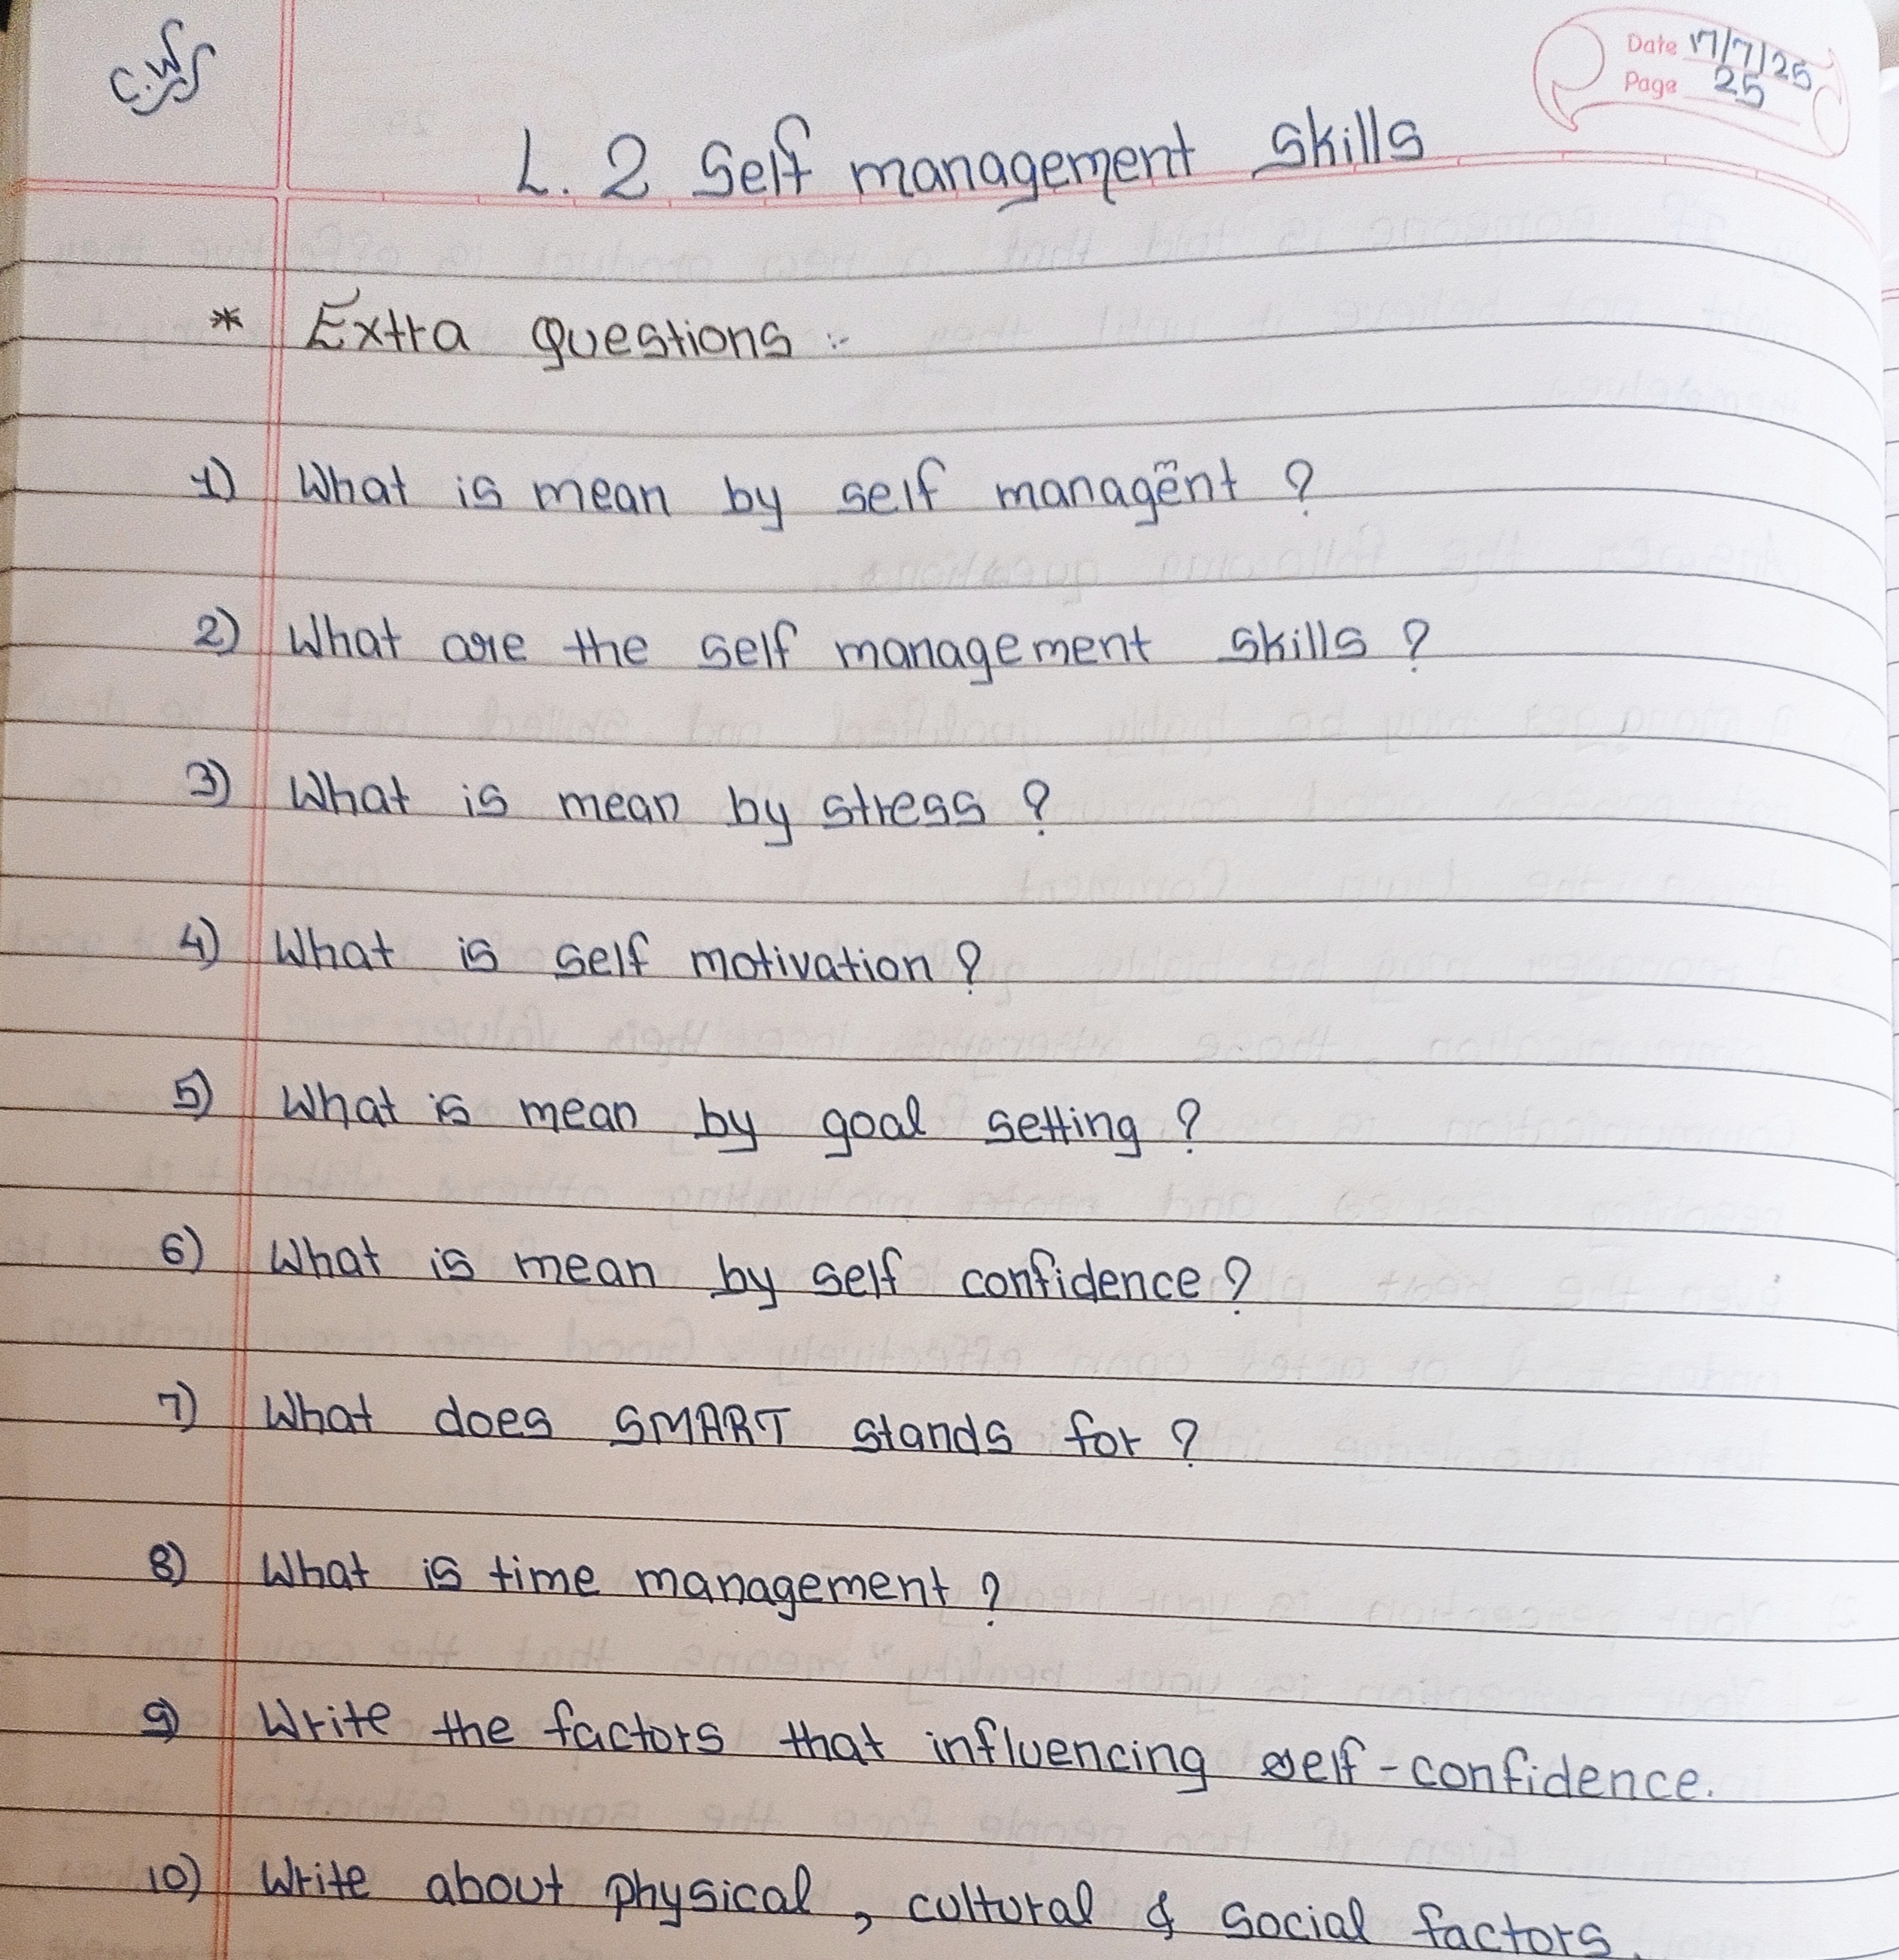 C.W
Date 17/7/25
Page 25
L. 2 Self management skills
* Extra questions :-
1) What is mean by self managent ?
2) What are the self management skills ?
3) What is mean by stress ?
4) What is self motivation ?
5) What is mean by goal setting ?
6) What is mean by self confidence ?
7) What does SMART stands for ?
8) What is time management ?
9) Write the factors that influencing self-confidence.
10) Write about physical, cultural & social factors.